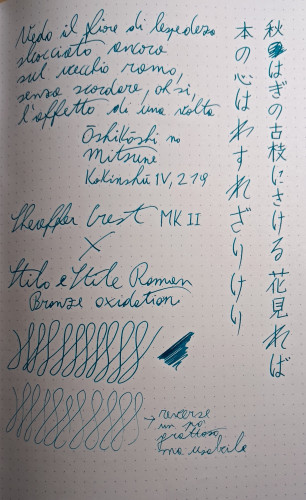 Vedo il fiore di lespedeza
sbocciato ancora
sul vecchio ramo,
senza scordare, oh sì,
l'affetto di una volta
Ōshikōshi no
Mitsune
Kokinshū IV, 219
秋はぎの古枝にさける花見れば
本の心はわすれざりけり
Sheaffer Crest MK II
X
Stilo e Stile Roman
Bronze oxidation
→ reverse
un po'
grattoso
ma usabile